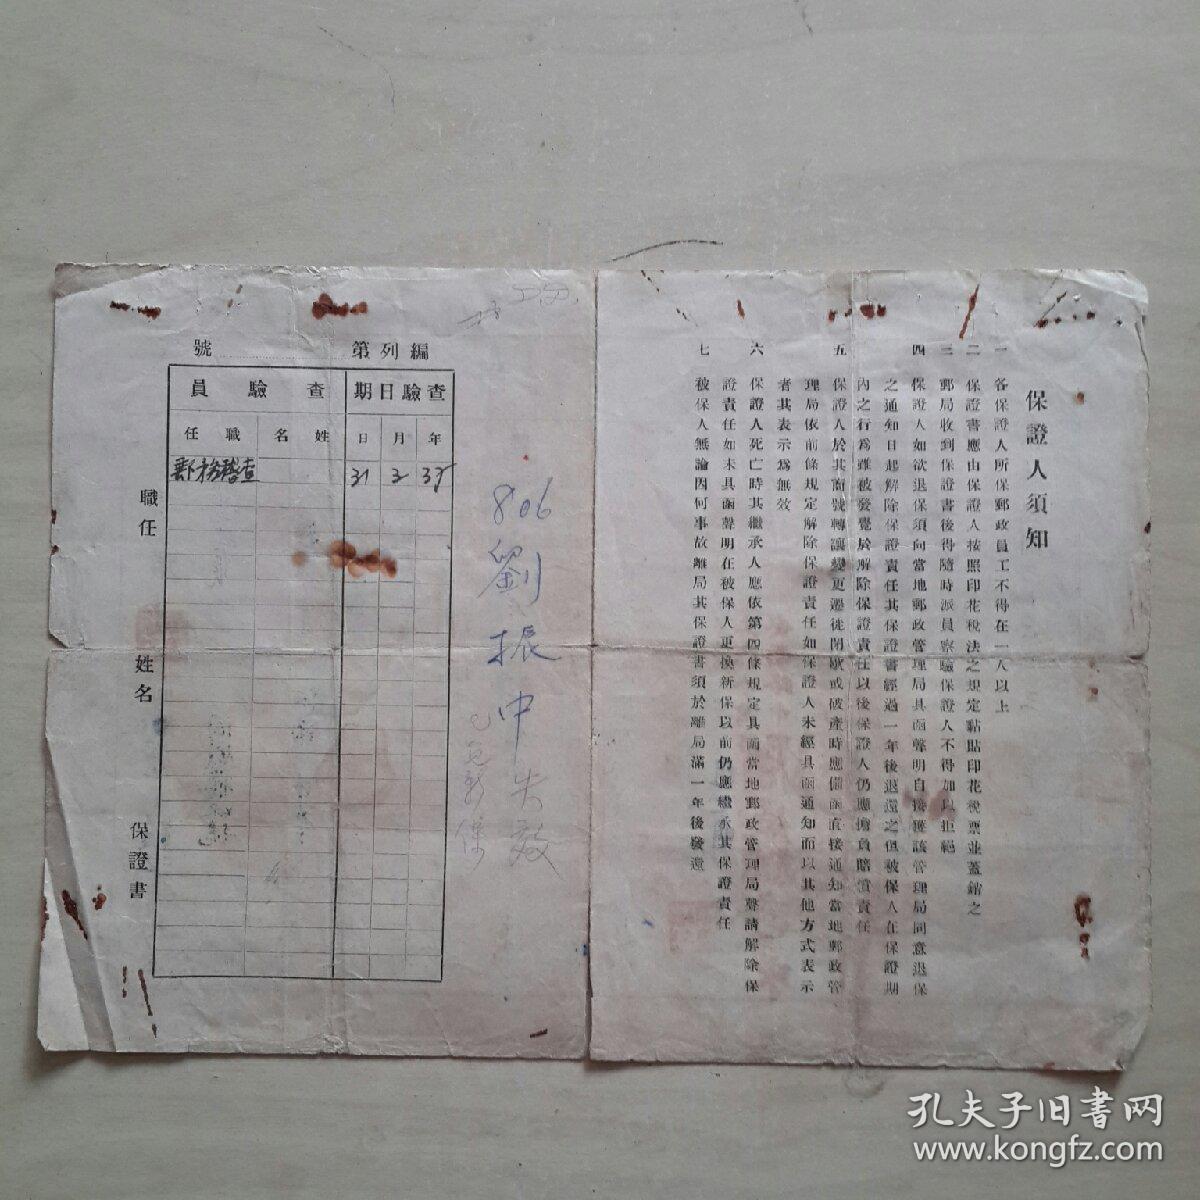 保證人須知
一 各保證人所保郵政員工不得在一人以上
二 保證書應由保證人按照印花稅法之規定黏貼印花稅票並蓋銷之
三 郵局收到保證書後得隨時派員察驗保證人不得加以拒絕
四 保證人如欲退保須向當地郵政管理局具函聲明自接獲該管理局同意退保
之通知日起解除保證責任其保證書經過一年後退還之但被保人在保證期
內之行為雖被發覺於解除保證責任以後保證人仍應擔負賠償責任
五 保證人於其商號轉讓變更遷徙閉歇或破產時應備函直接通知當地郵政管
理局依前條規定解除保證責任如保證人未經具函通知而以其他方式表示
者其表示為無效
六 保證人死亡時其繼承人應依第四條規定具函當地郵政管理局聲請解除保
證責任如未具函聲明在被保人更換新保以前仍應繼承其保證責任
七 被保人無論因何事故離局其保證書須於離局滿一年後發還
806 劉振中失效
已覓新保
編列第 號
查驗日期 查驗員
年 月 日 姓名 職任
2 31 郵務稽查
職任 姓名 保證書
孔夫子旧书网
www.kongfz.com